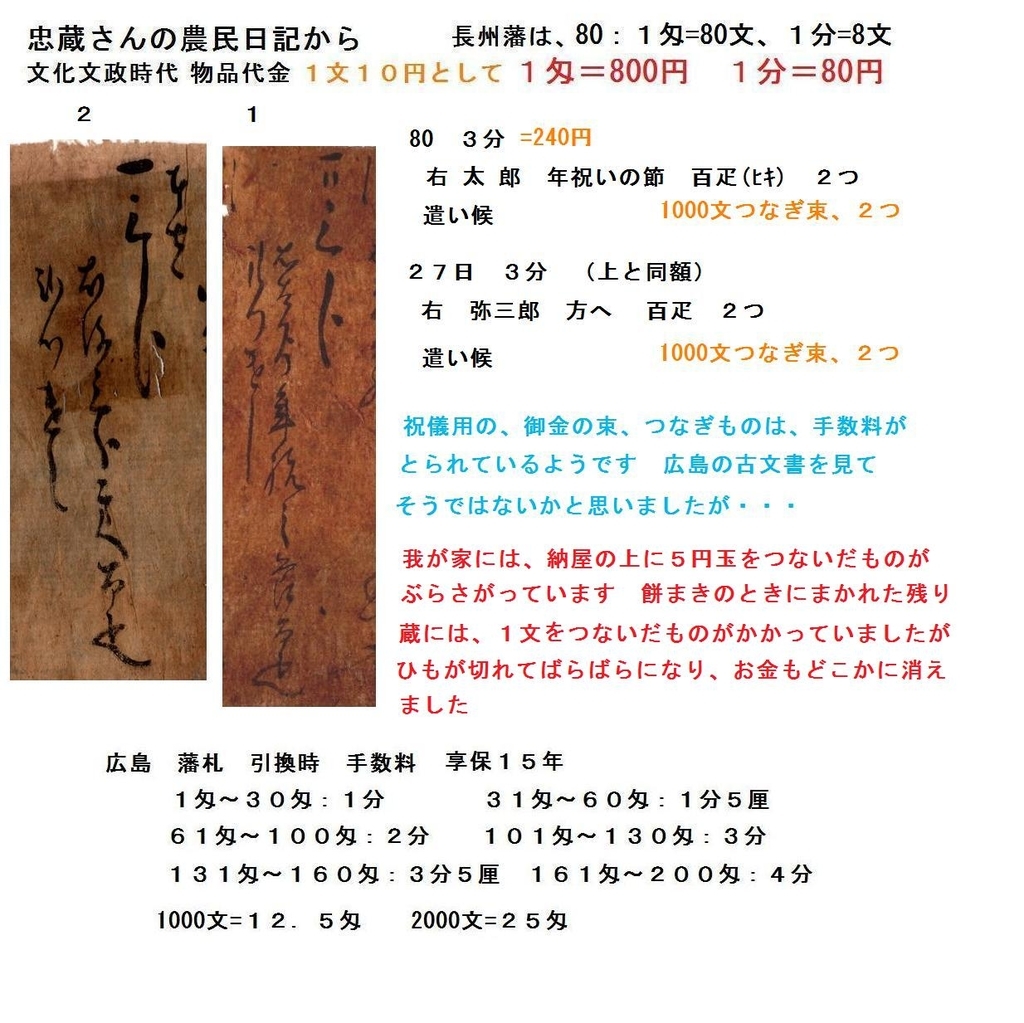 忠蔵さんの農民日記から　　長州藩は、80：１匁=80文、１分=8文
文化文政時代 物品代金 １文１０円として １匁＝800円　１分＝80円
２　１
80　３分 =240円
右 太 郎　年祝いの節　百疋(ﾋｷ)　２つ
遣い候　1000文つなぎ束、２つ
２７日　３分　（上と同額）
右　弥三郎　方へ　百疋　２つ
遣い候　1000文つなぎ束、２つ
祝儀用の、御金の束、つなぎものは、手数料が
とられているようです　広島の古文書を見て
そうではないかと思いましたが・・・
我が家には、納屋の上に５円玉をつないだものが
ぶらさがっています　餅まきのときにまかれた残り
蔵には、１文をつないだものがかかっていましたが
ひもが切れてばらばらになり、お金もどこかに消え
ました
広島　藩札　引換時　手数料　享保１５年
１匁～３０匁：１分　３１匁～６０匁：１分５厘
６１匁～１００匁：２分　１０１匁～１３０匁：３分
１３１匁～１６０匁：３分５厘　１６１匁～２００匁：４分
1000文=１２．５匁　2000文=２５匁